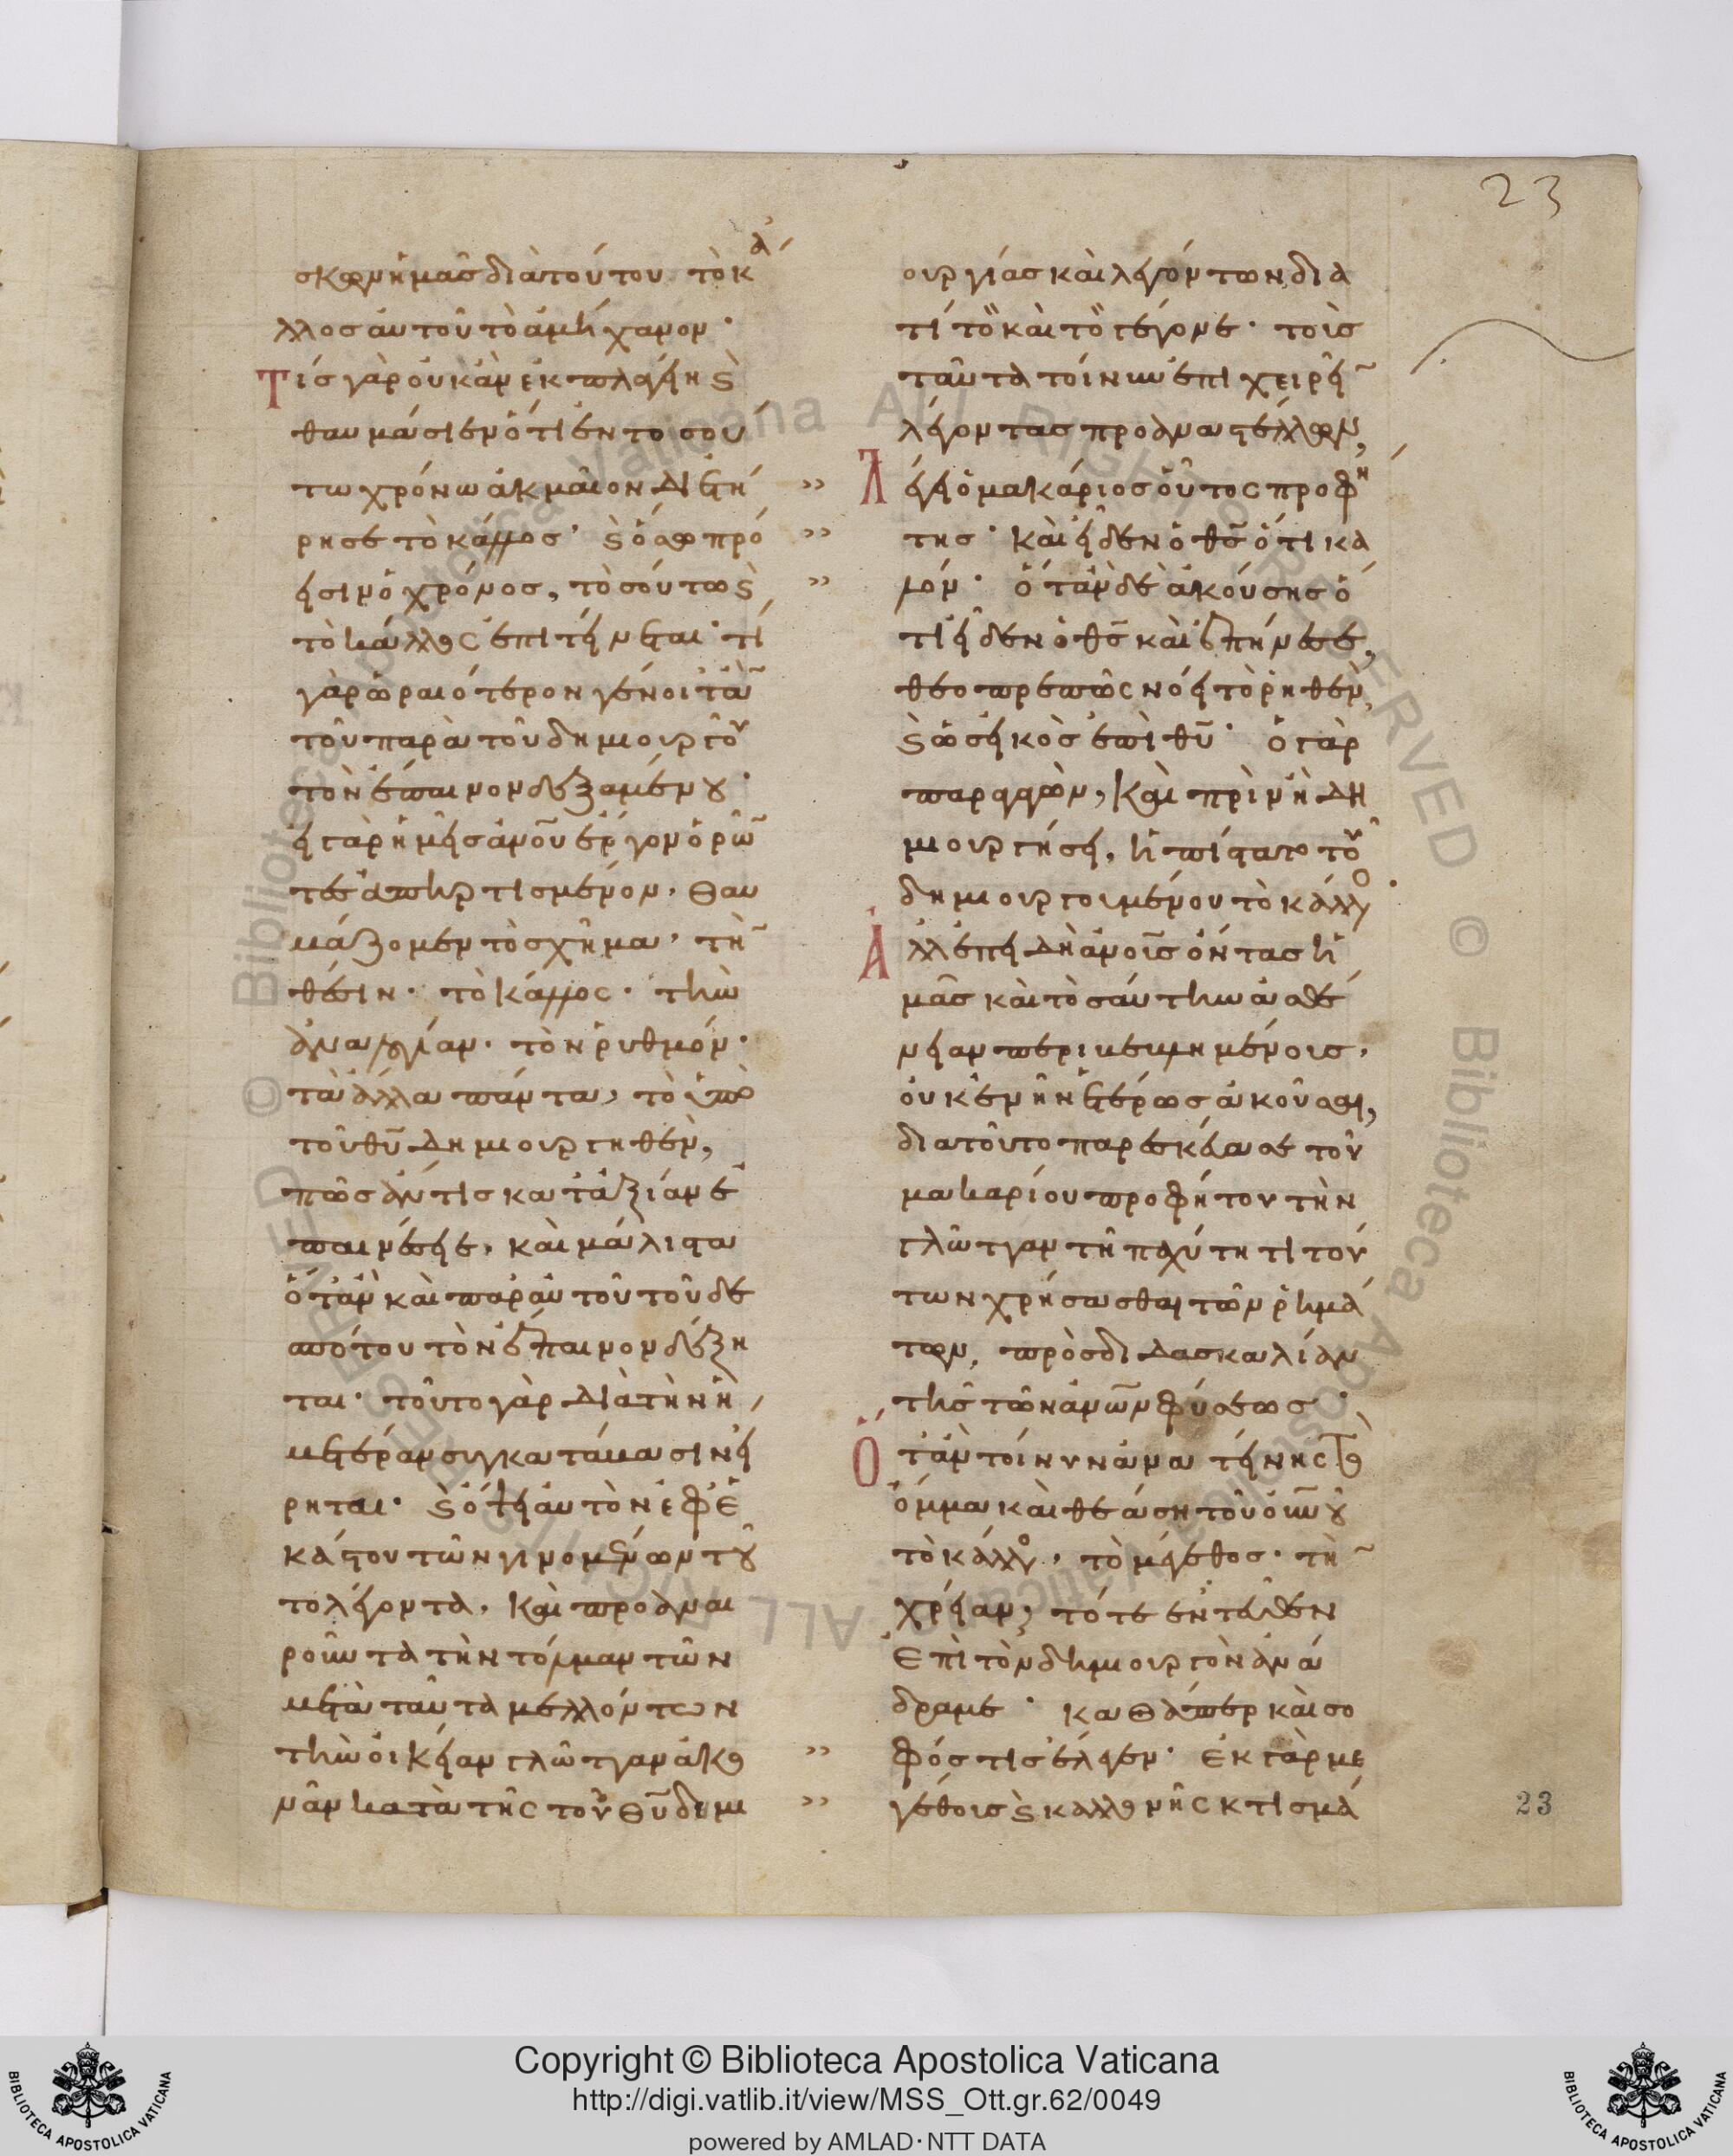 23
σκων ἡμᾶς διὰ τούτου τὸ κά
λλος αὐτοῦ τὸ ἀμήχανον·
Τίς γὰρ οὐκ ἂν ἐκπλαγείη καὶ
θαυμάσειεν ὅτι ἐν τοσού
τω χρόνω ἀκμαῖον διετή
ρησε τὸ κάλλος· καὶ ὅσω πρό
εισιν ὁ χρόνος, τοσούτω καὶ
τὸ κάλλος ἐπιτείνεται· τί
γὰρ ὡραιότερον γένοιτ ἂν
τοῦ παρὰ τοῦ δημιουργοῦ
τὸν ἔπαινον δεξαμένου·
εἰ γὰρ ἡμεῖς ἀνοῦ ἔργον ὁρῶν
τες ἀπηρτισμένον, θαυ
μάζομεν τὸ σχῆμα, τὴν
θέσιν· τὸ κάλλος· τὴν
ἀναλογίαν· τὸν ῥυθμόν·
τὰ ἄλλα πάντα, τὸ ὑπὸ
τοῦ θυ δημιουργηθὲν,
πῶς ἄν τις κατ ἀξίαν ἐ
παινέσειε, καὶ μάλιστα
ὅταν καὶ παρ αὐτοῦ τοῦ δε
σπότου τὸν ἔπαινον δέξη
ται· τοῦτο γὰρ διὰ τὴν ἡ
μετέραν συγκατάβασιν εἴ
ρηται· καὶ ὅτε αὐτὸν ἐφ ἑ
κάστου τῶν γινομένων του
το λέγοντα, καὶ προαναι
ροῦντα τὴν τόλμαν τῶν
μετὰ ταῦτα μελλόντων
τὴν οἰκείαν γλῶτταν ἀκο
νᾶν κατὰ τῆς τοῦ θυ δημι
ουργίας καὶ λεγόντων, δια
τί τὸ καὶ τὸ γέγονε· τοὺς
ταῦτα τοίνυν ἐπιχειρεῖν
λέγοντας προαναστέλλων,
λέγει ὁ μακάριος οὗτος προφή
της· καὶ εἶδεν ὁ θς ὅτι κα
λόν· ὅταν δὲ ἀκούσης ὅ
τι εἶδεν ὁ θς καὶ ἐπήνεσε,
θεοπρεπῶς νόει τὸ ῥηθὲν,
καὶ ὡς εἰκὸς ἐπὶ θυ· ὁ γὰρ
παραγαγὼν, καὶ πρὶν ἢ δη
μιουργήσει, ἠπίστατο τοῦ
δημιουργουμένου τὸ κάλλος·
Ἀλλ ἐπειδὴ ἀνοις ὄντας ἡ
μᾶς καὶ τοσαύτην ἀσθέ
νειαν περικειμένοις,
οὐκ ἐνῆν ἑτέρως ἀκοῦσαι,
διατοῦτο παρεσκεύασε τοῦ
μακαρίου προφήτου τὴν
γλῶτταν τῆ παχύτητι τού
των χρήσασθαι τῶν ῥημά
των, πρὸς διδασκαλίαν
τῆς τῶν ἀνων φύσεως·
Ὅταν τοίνυν ἀνατείνης τὸ
ὄμμα καὶ θεάση τοῦ οὐνου
τὸ κάλλος, τὸ μέγεθος· τὴν
χρείαν, τότε ἐντεῦθεν
ἐπὶ τὸν δημιουργὸν ἀνά
δραμε· καθάπερ καὶ σο
φός τις ἔλεγεν· ἐκ γὰρ με
γέθους καὶ καλλονῆς κτισμά
23
Copyright © Biblioteca Apostolica Vaticana
http://digi.vatlib.it/view/MSS_Ott.gr.62/0049
powered by AMLAD·NTT DATA